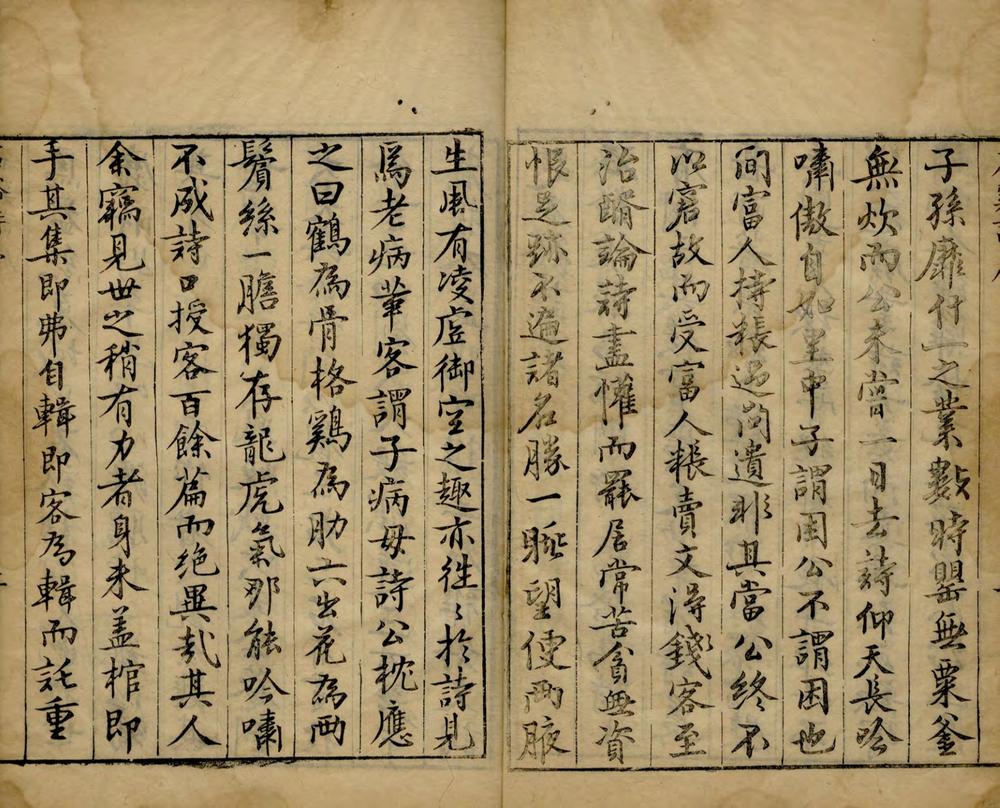 子孫靡什一之業數時罌無粟釜
無炊而公未嘗一日去詩仰天長吟
嘯傲自如里中子謂困公不謂困也
間富人持粻過問遺非其當公終不
以窘故而受富人粻賣文得錢客至
治醑論詩盡懽而罷居常苦貧無資
恨足跡不遍諸名勝一眺望便兩腋
生風有凌虛御空之趣亦徃〻於詩見
焉老病革客謂子病毋詩公枕應
之曰鶴為骨格鷄為肋六出花為兩
鬢絲一膽獨存龍虎氣那能吟嘯
不成詩口授客百餘篇而絕異哉其人
余竊見世之稍有力者身未盖棺即
手其集即弗自輯即客為輯而託重